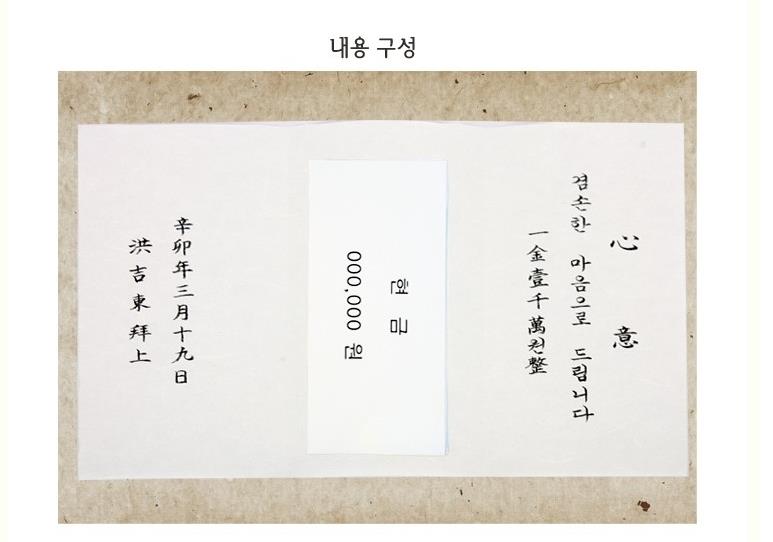 내용 구성
心意
겸손한 마음으로 드립니다
一金壹千萬원整
현금
000,000 원
辛卯年三月十九日
洪吉東拜上